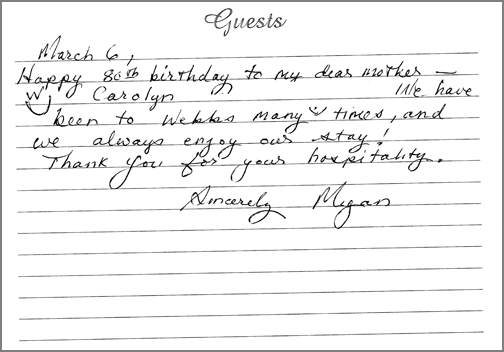 Guests
March 6,
Happy 80th birthday to my dear mother —
Carolyn We have
been to Webbs many times, and
we always enjoy our stay!
Thank you for your hospitality.
Sincerely Megan